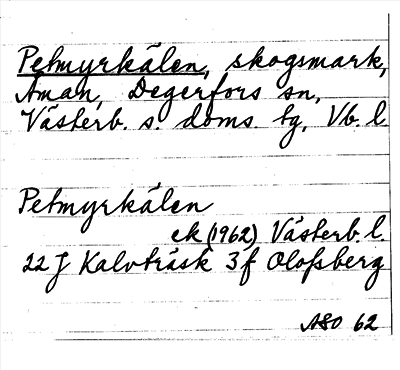 Petmyrkälen, skogsmark,
Åman, Degerfors sn,
Västerb. s. doms. tg, Vb. l
Petmyrkälen
ek (1962) Västerb. l.
22 J Kalvträsk 3f Olofsberg
ASO 62